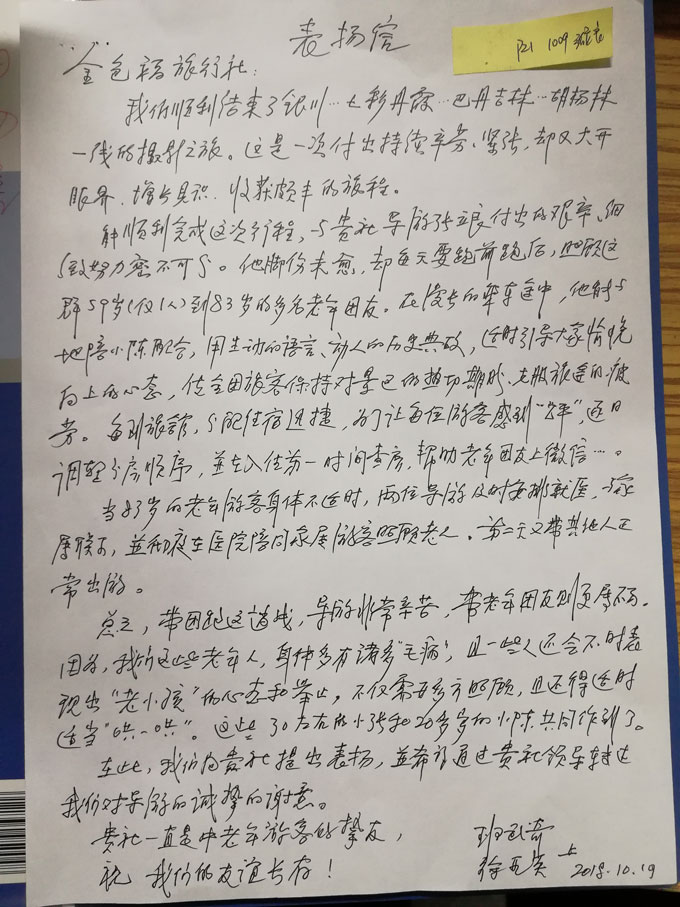 表扬信
1009
金色福旅行社：
我们顺利结束了银川…七彩丹霞…巴丹吉林…胡杨林
一线的摄影之旅。这是一次付出持续辛劳、紧张，却又大开
眼界、增长见识、收获颇丰的旅程。
能顺利完成这次行程，与贵社导游张良付出的艰辛、细
致努力密不可分。他脚伤未愈，却每天要跑前跑后，照顾这
群59岁(仅1人)到83岁的多名老年团友。在漫长的乘车途中，他时与
地陪小陈配合，用生动的语言、动人的历史典故，适时引导大家愉悦
向上的心态，使全团旅客保持对景色的热切期盼，克服旅途的疲
劳。每到旅館，分配住宿迅捷，为了让每位游客感到“公平”，逐日
调整分房顺序，並在入住第一时间查房，帮助老年团友上微信…。
当83岁的老年游客身体不适时，两位导游及时安排就医、与家
属联系，並彻夜在医院陪同家属游客照顾老人。第二天又带其他人正
常出游。
总之，带团跑这道线，导游非常辛苦，带老年团友则更属不易。
因为，我们这些老年人，身体多有诸多“毛病”，且一些人还会不时表
现出“老小孩”的心态和举止。不仅需要多方照顾，且还得适时
适当“哄一哄”。这些30左右的小张和20多岁的小陈共同作到了。
在此，我们向贵社提出表扬，並希望通过贵社领导转达
我们对导游的诚挚的谢意。
贵社一直是中老年游客的挚友，
祝 我们的友谊长存！
上
2018.10.19